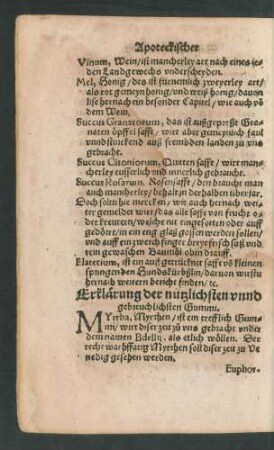 Apoteckischer
Vinum, Wein/ist mancherley art nach eines ie-
den Landgewechs vnderscheyden.
Mel, Honig/des ist fürnemlich zweyerley art/
als rot gemeyn honig/vnd weiß honig/dauon
lise hernach ein besonder Capitel/wie auch võ
dem Wein.
Succus Granatorum, das ist außgepreßt Gra-
naten öpffel safft/wirt aber gemeynlich faul
vnd stinckend auß frembden landen zu vns
gebracht.
Succus Citoniorum, Quitten safft/wirt man-
cherley eusserlich vnd innerlich gebraucht.
Succus Rosarum, Rosensafft/den braucht man
auch mancherley/behalt in der halben über jar.
Doch soltu hie mercken/wie auch hernach wei-
ter gemeldet wirt/das alle safft von feucht o-
der kreutern/welche nit eingesotten oder auff
gedörrt/in ein eng glaß gossen werden sollen/
vnd auff ein zwerch finger breyt frisch süß vnd
rein gewaschen Baumöl ohn darauff.
Elaterium, ist ein auffgetrückter safft võ kleinen
springenden Hundskürbßlin/daruon wirstu
hernach weitern bericht finden/ꝛc.
Erklärung der nützlichsten vnnd
gebreuchlichsten Gummi.
Myrrha, Myrrhen/ist ein trefflich Gum-
mi/wirt diser zeit zů vns gebracht vnder
dem namen Bdelij, als etlich wöllen. Der
recht warhfftig Myrrhen soll diser zeit zů Ve
nedig gesehen werden.
Euphor-